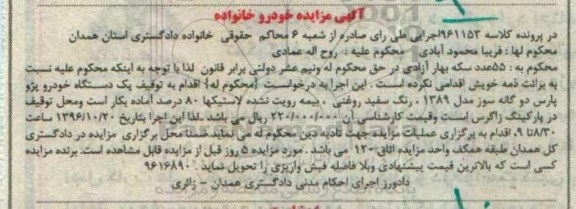 آگهی مزایده خودرو خانواده
در پرونده کلاسه ۹۶۱۱۵۲اجرایی ملی رای صادره از شعبه ۶ محاکم حقوقی خانواده دادگستری استان همدان
محکوم لها : فریبا محمود آبادی محکوم علیه : روح اله عمادی
محکوم به : ۵۵عدد سکه بهار آزادی در حق محکوم له ونیم عشر دولتی برابر قانون لذا با توجه به اینکه محکوم علیه نسبت
به برائت ذمه خویش اقدامی نکرده است . این اجرا به درخواست {محکوم له} اقدام به توقیف یک دستگاه خودرو پژو
پارس دو گانه سوز مدل ۱۳۸۹ . رنگ سفید روغنی . بیمه رویت نشده لاستیکها ۸۰ درصد آماده بکار است ومحل توقیف
در پارکینگ زاگرس است وقیمت کارشناسی آن ۲۲۰/۰۰۰/۰۰۰ ریال می باشد .لذا این اجرا بتاریخ ۱۳۹۶/۱۰/۲۰ ساعت
۸/۳۰تا ۹ اقدام به برگزاری عملیات مزایده جهت تادیه دین محکوم له می نماید ضمنا محل برگزاری مزایده در دادگستری
کل همدان طبقه همکف واحد مزایده اتاق ۱۲۰ می باشد . مورد مزایده ۵ روز قبل از مزایده قابل مشاهده است. برنده مزایده
کسی است که بالاترین قیمت پیشنهادی وبلا فاصله فیش واریزی را تحویل نماید . ۹۶۱۶۸۹۰
دادورز اجرای احکام مدنی دادگستری همدان – زائری